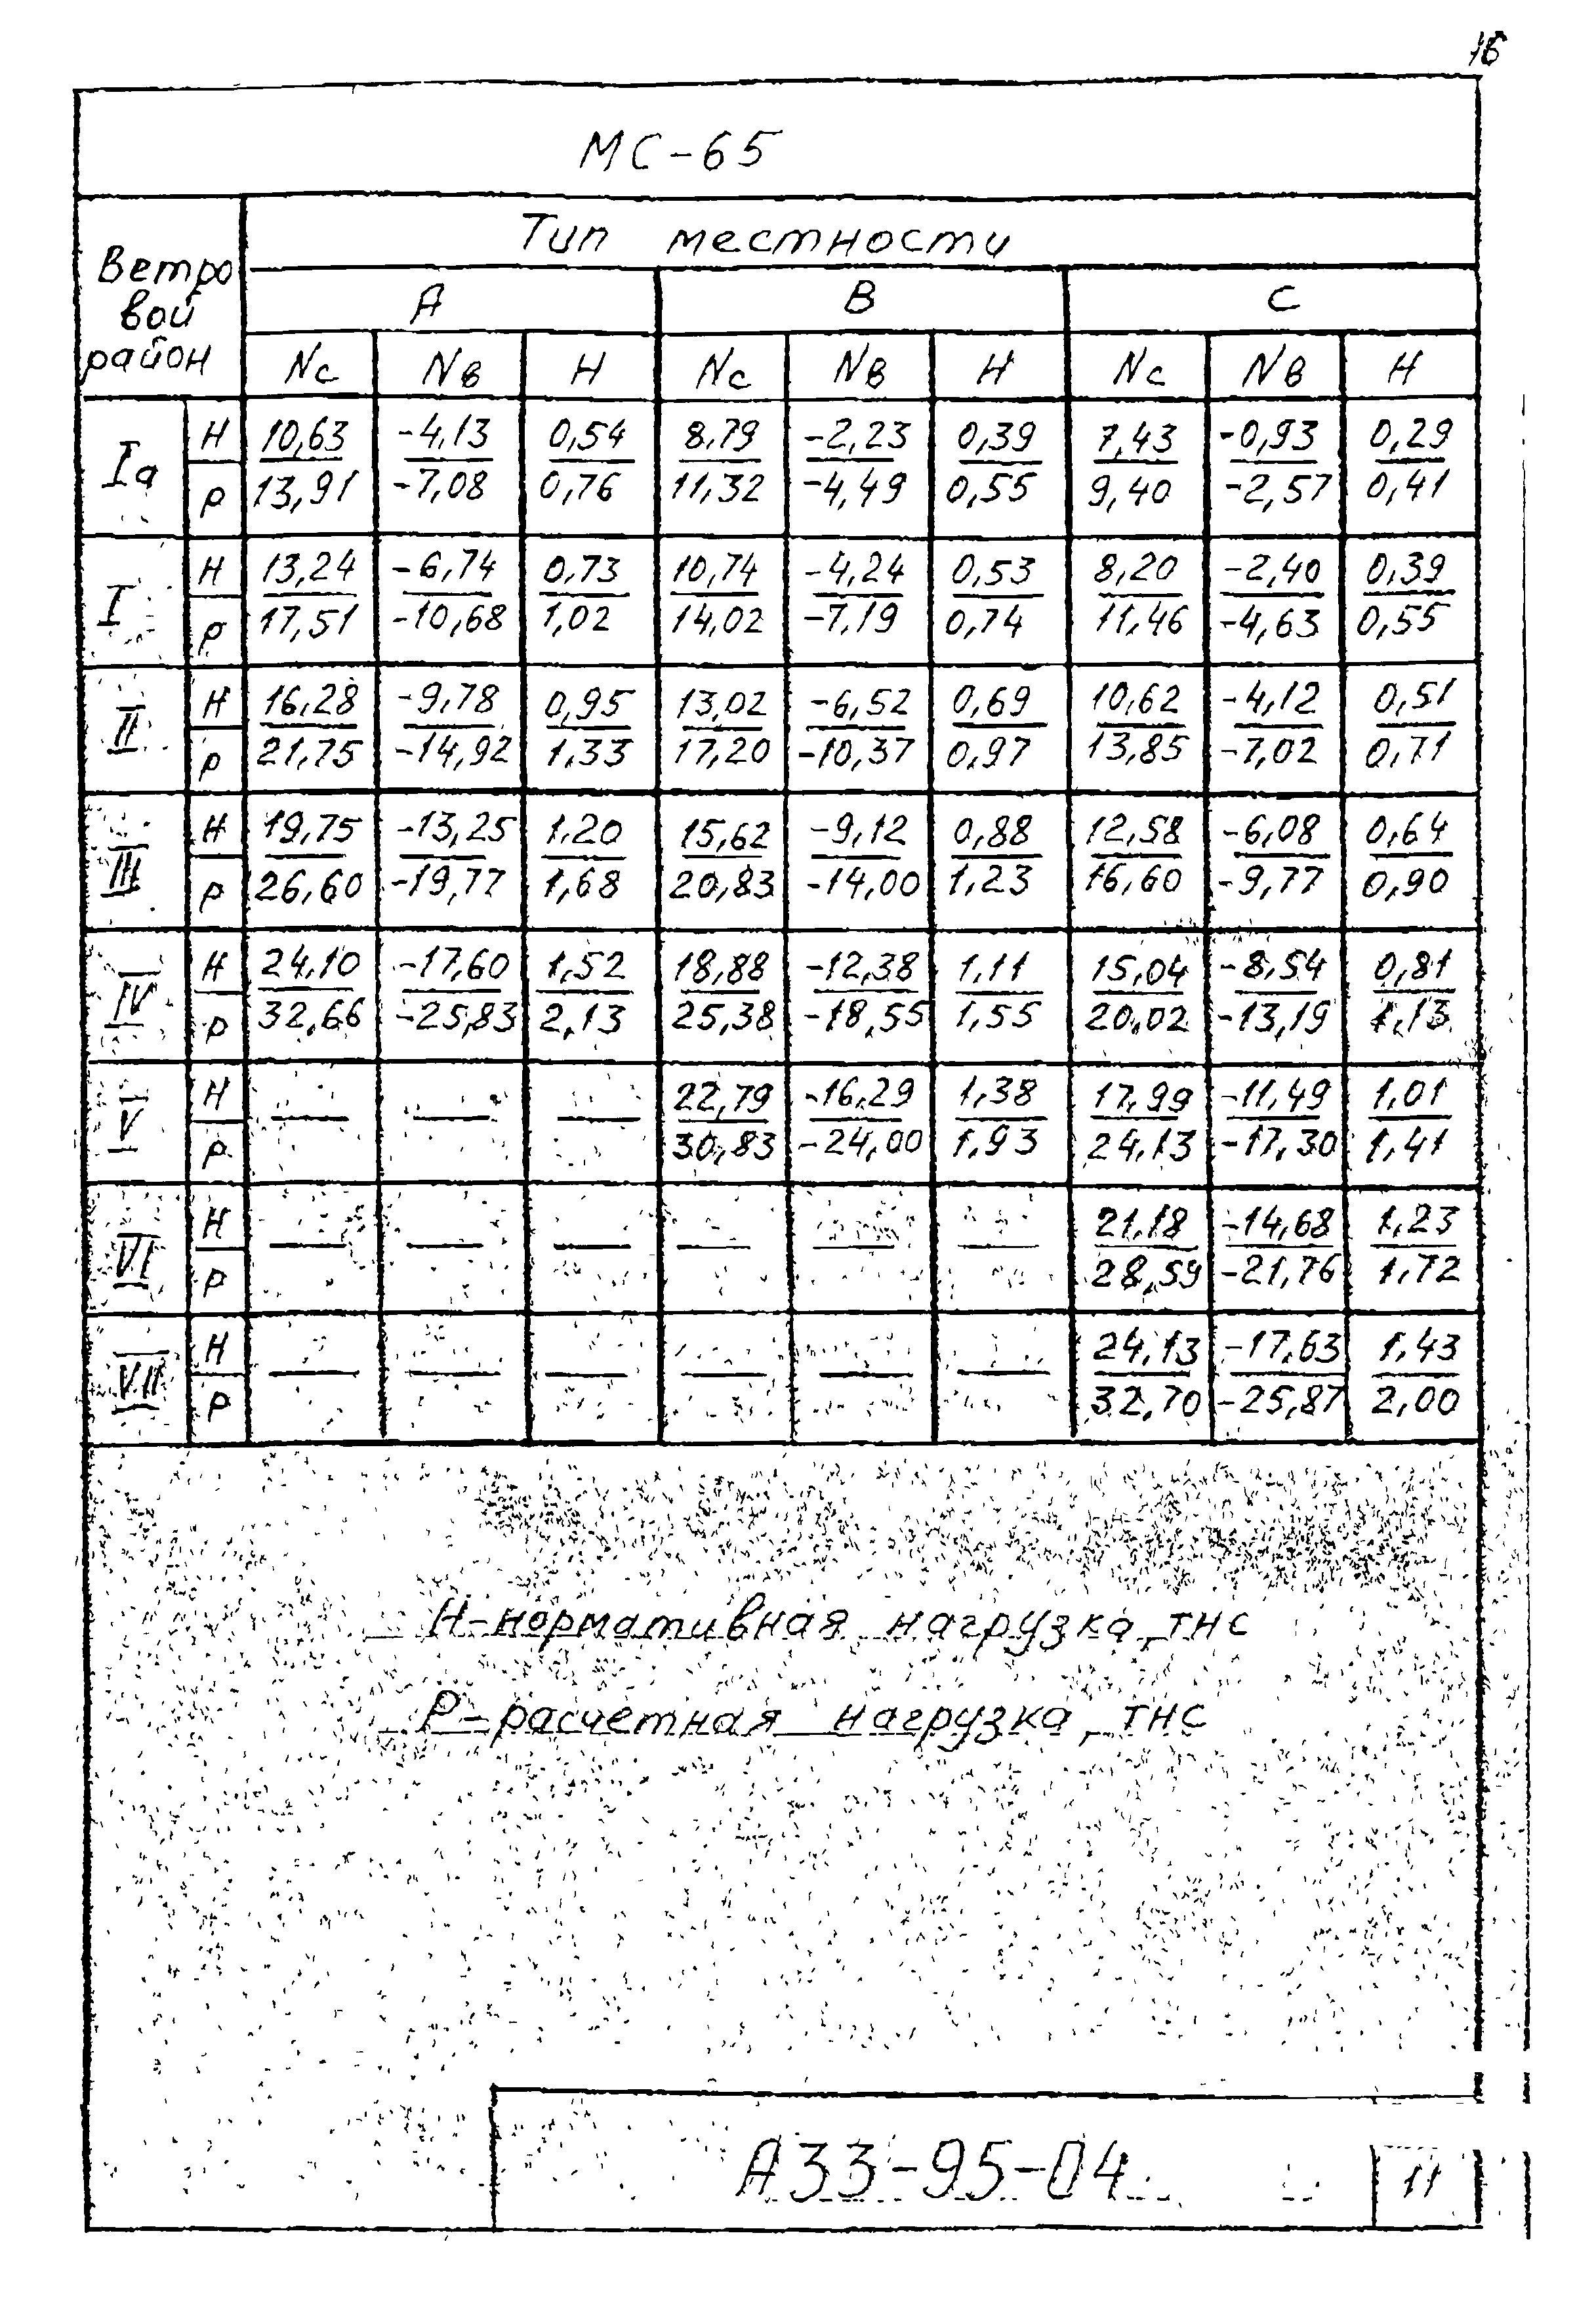 16
МС-65
Тип местности
Ветро
вой
район
А В С
Nc Nв Н Nc Nв Н Nc Nв Н
Iа Н 10,63 -4,13 0,54 8,79 -2,23 0,39 7,43 -0,93 0,29
Р 13,91 -7,08 0,76 11,32 -4,49 0,55 9,40 -2,57 0,41
I Н 13,24 -6,74 0,73 10,74 -4,24 0,53 8,20 -2,40 0,39
Р 17,51 -10,68 1,02 14,02 -7,19 0,74 11,46 -4,63 0,55
II Н 16,28 -9,78 0,95 13,02 -6,52 0,69 10,62 -4,12 0,51
Р 21,75 -14,92 1,33 17,20 -10,37 0,97 13,85 -7,02 0,71
III Н 19,75 -13,25 1,20 15,62 -9,12 0,88 12,58 -6,08 0,64
Р 26,60 -19,77 1,68 20,83 -14,00 1,23 16,60 -9,77 0,90
IV Н 24,10 -17,60 1,52 18,88 -12,38 1,11 15,04 -8,54 0,81
Р 32,66 -25,83 2,13 25,38 -18,55 1,55 20,02 -13,19 1,13
V Н — — — 22,79 -16,29 1,38 17,99 -11,49 1,01
Р 30,83 -24,00 1,93 24,13 -17,30 1,41
VI Н — — — — — — 21,18 -14,68 1,23
Р 28,59 -21,76 1,72
VII Н — — — — — — 24,13 -17,63 1,43
Р 32,70 -25,87 2,00
Н-нормативная нагрузка, тнс
Р-расчетная нагрузка, тнс
А33-95-04 11